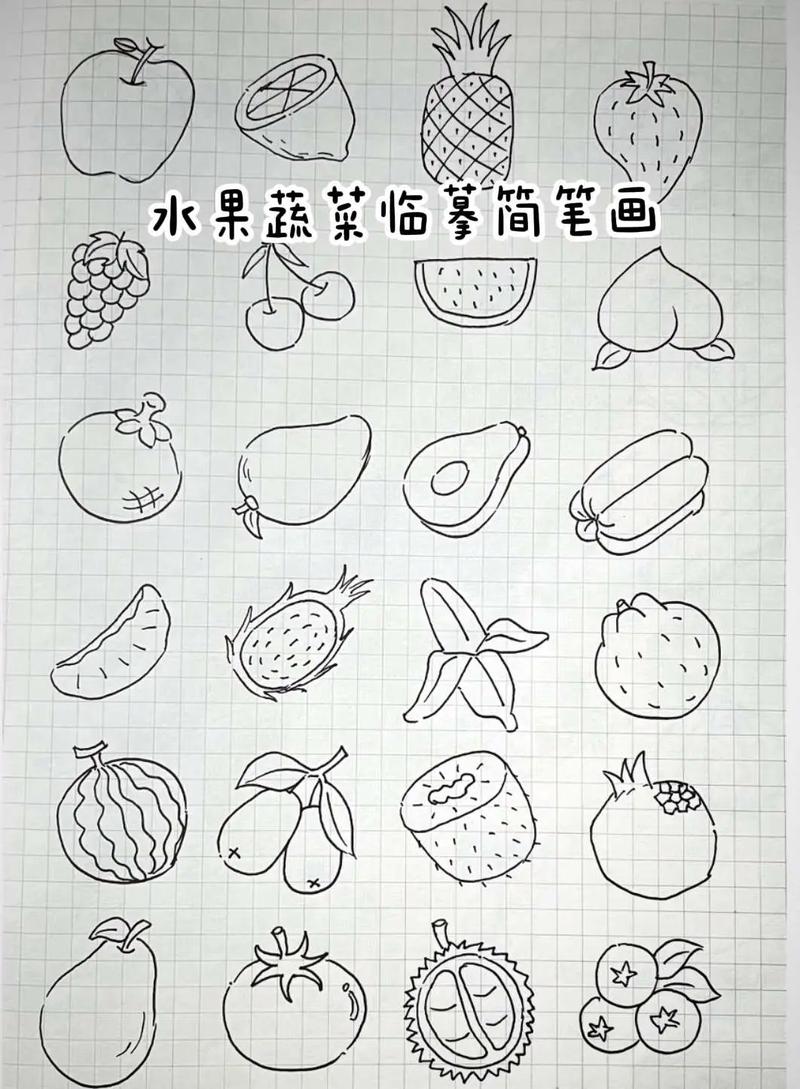 水果蔬菜临摹简笔画